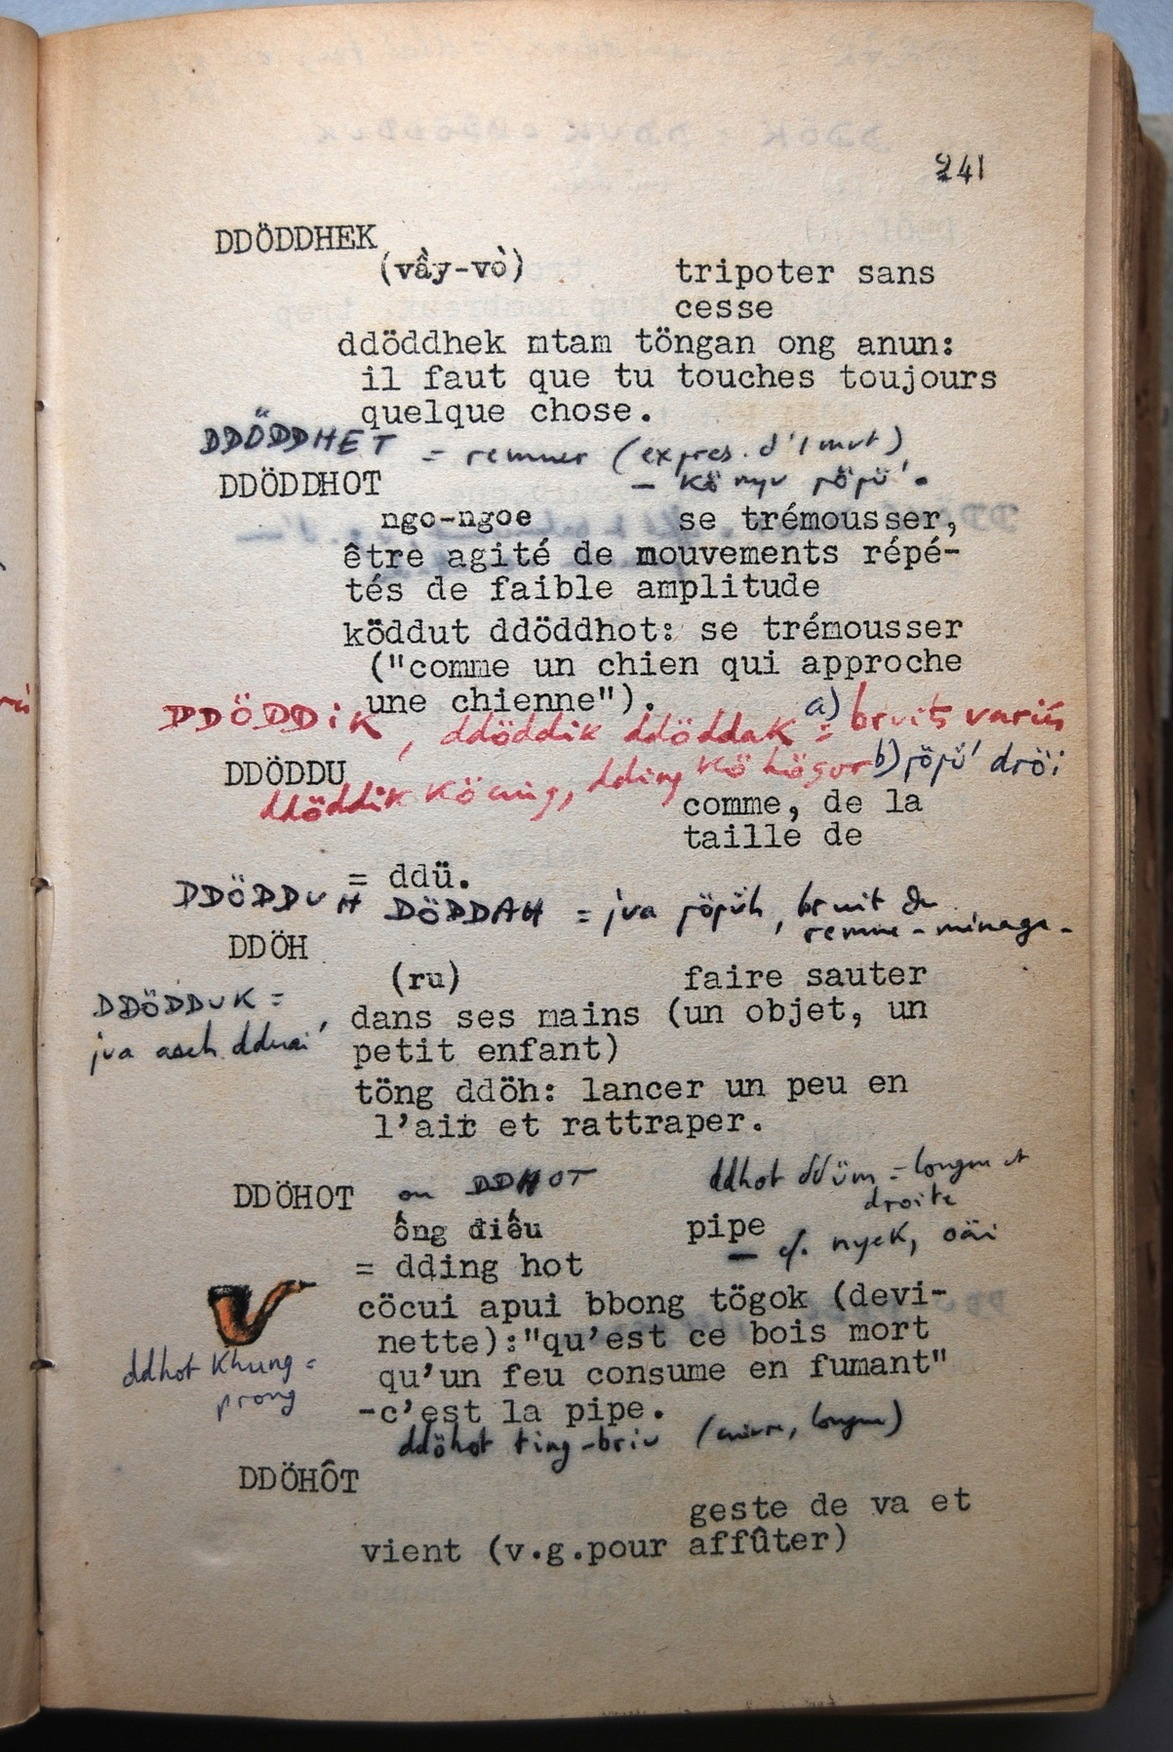 241
DDÖDDHEK
(vầy-vò) tripoter sans
cesse
ddöddhek mtam töngan ong anun:
il faut que tu touches toujours
quelque chose.
DDÖDDHET = remuer (expres. d'1 mvt)
DDÖDDHOT – kö nyu pöpü'.
ngo-ngoe se trémousser,
être agité de mouvements répé-
tés de faible amplitude
köddut ddöddhot: se trémousser
("comme un chien qui approche
une chienne").
DDÖDDiK, ddöddik ddöddak = a) bruits variés
DDÖDDU b) pöpü' dröi
ddöddik kö, dding kö högur
comme, de la
taille de
= ddü.
DDÖDDUH DÖDDAH = jva pöpüh, bruit de
remue-ménage-
DDÖH
(ru) faire sauter
DDÖDDUK =
dans ses mains (un objet, un
jva aseh dduai'
petit enfant)
töng ddöh: lancer un peu en
l'air et rattraper.
ddhot ddüm = longue et
droite
DDÖHOT ou DDHOT
ống điếu pipe
– cf. nyek, oäi
= dding hot
cöcui apui bbong tögok (devi-
nette):"qu'est ce bois mort
ddhot Khung =
prong
qu'un feu consume en fumant"
-c'est la pipe.
ddöhot ting-briu (cuivre, longue)
DDÖHÔT
geste de va et
vient (v.g.pour affûter)